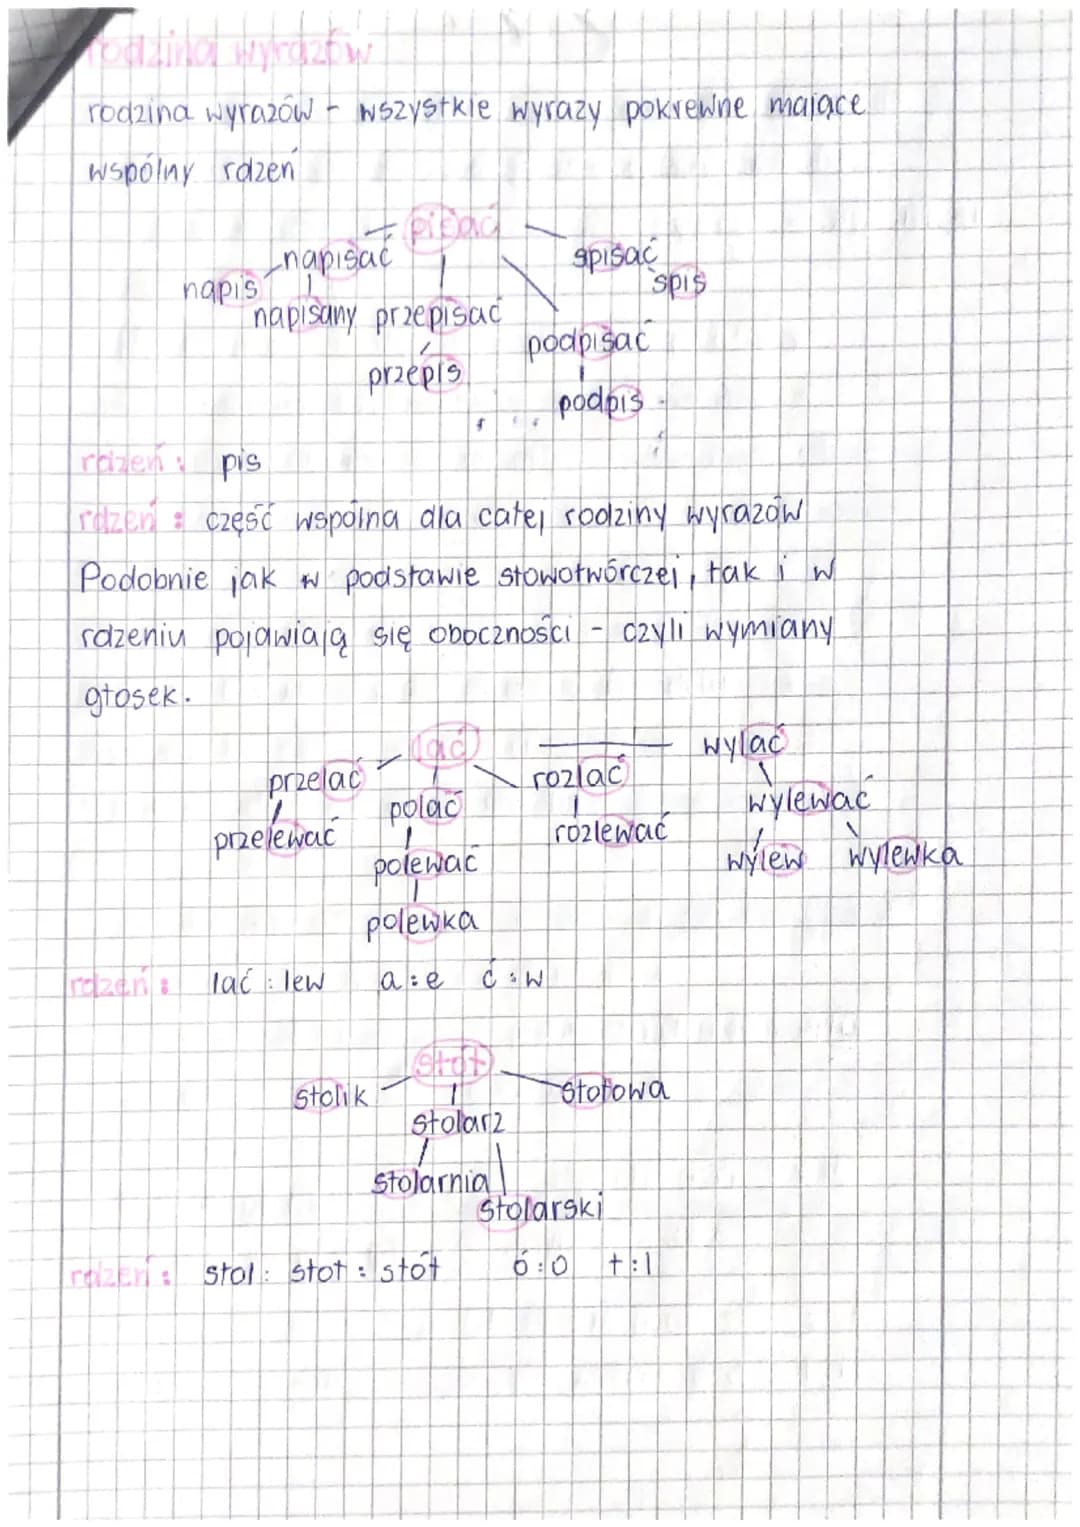 rodzina wyrazów
rodzina wyrazów - wszystkie wyrazy pokrewne mające
wspólny rdzeń
pisać
napisać spisać
napis spis
napisany przepisać
podpisać
przepis
podpis
rdzeń: pis
rdzeń: część wspólna dla całej rodziny wyrazów
Podobnie jak w podstawie słowotwórczej, tak i w
rdzeniu pojawiają się oboczności - czyli wymiany
głosek.
lać wylać
przelać rozlać
polać wylewać
przelewać rozlewać
polewać wylew wylewka
polewka
rdzeń: lać : lew a:e ć:w
stół
stolik stołowa
stolarz
stolarnia
stolarski
rdzeń: stol : stoł : stół ó:o ł:l